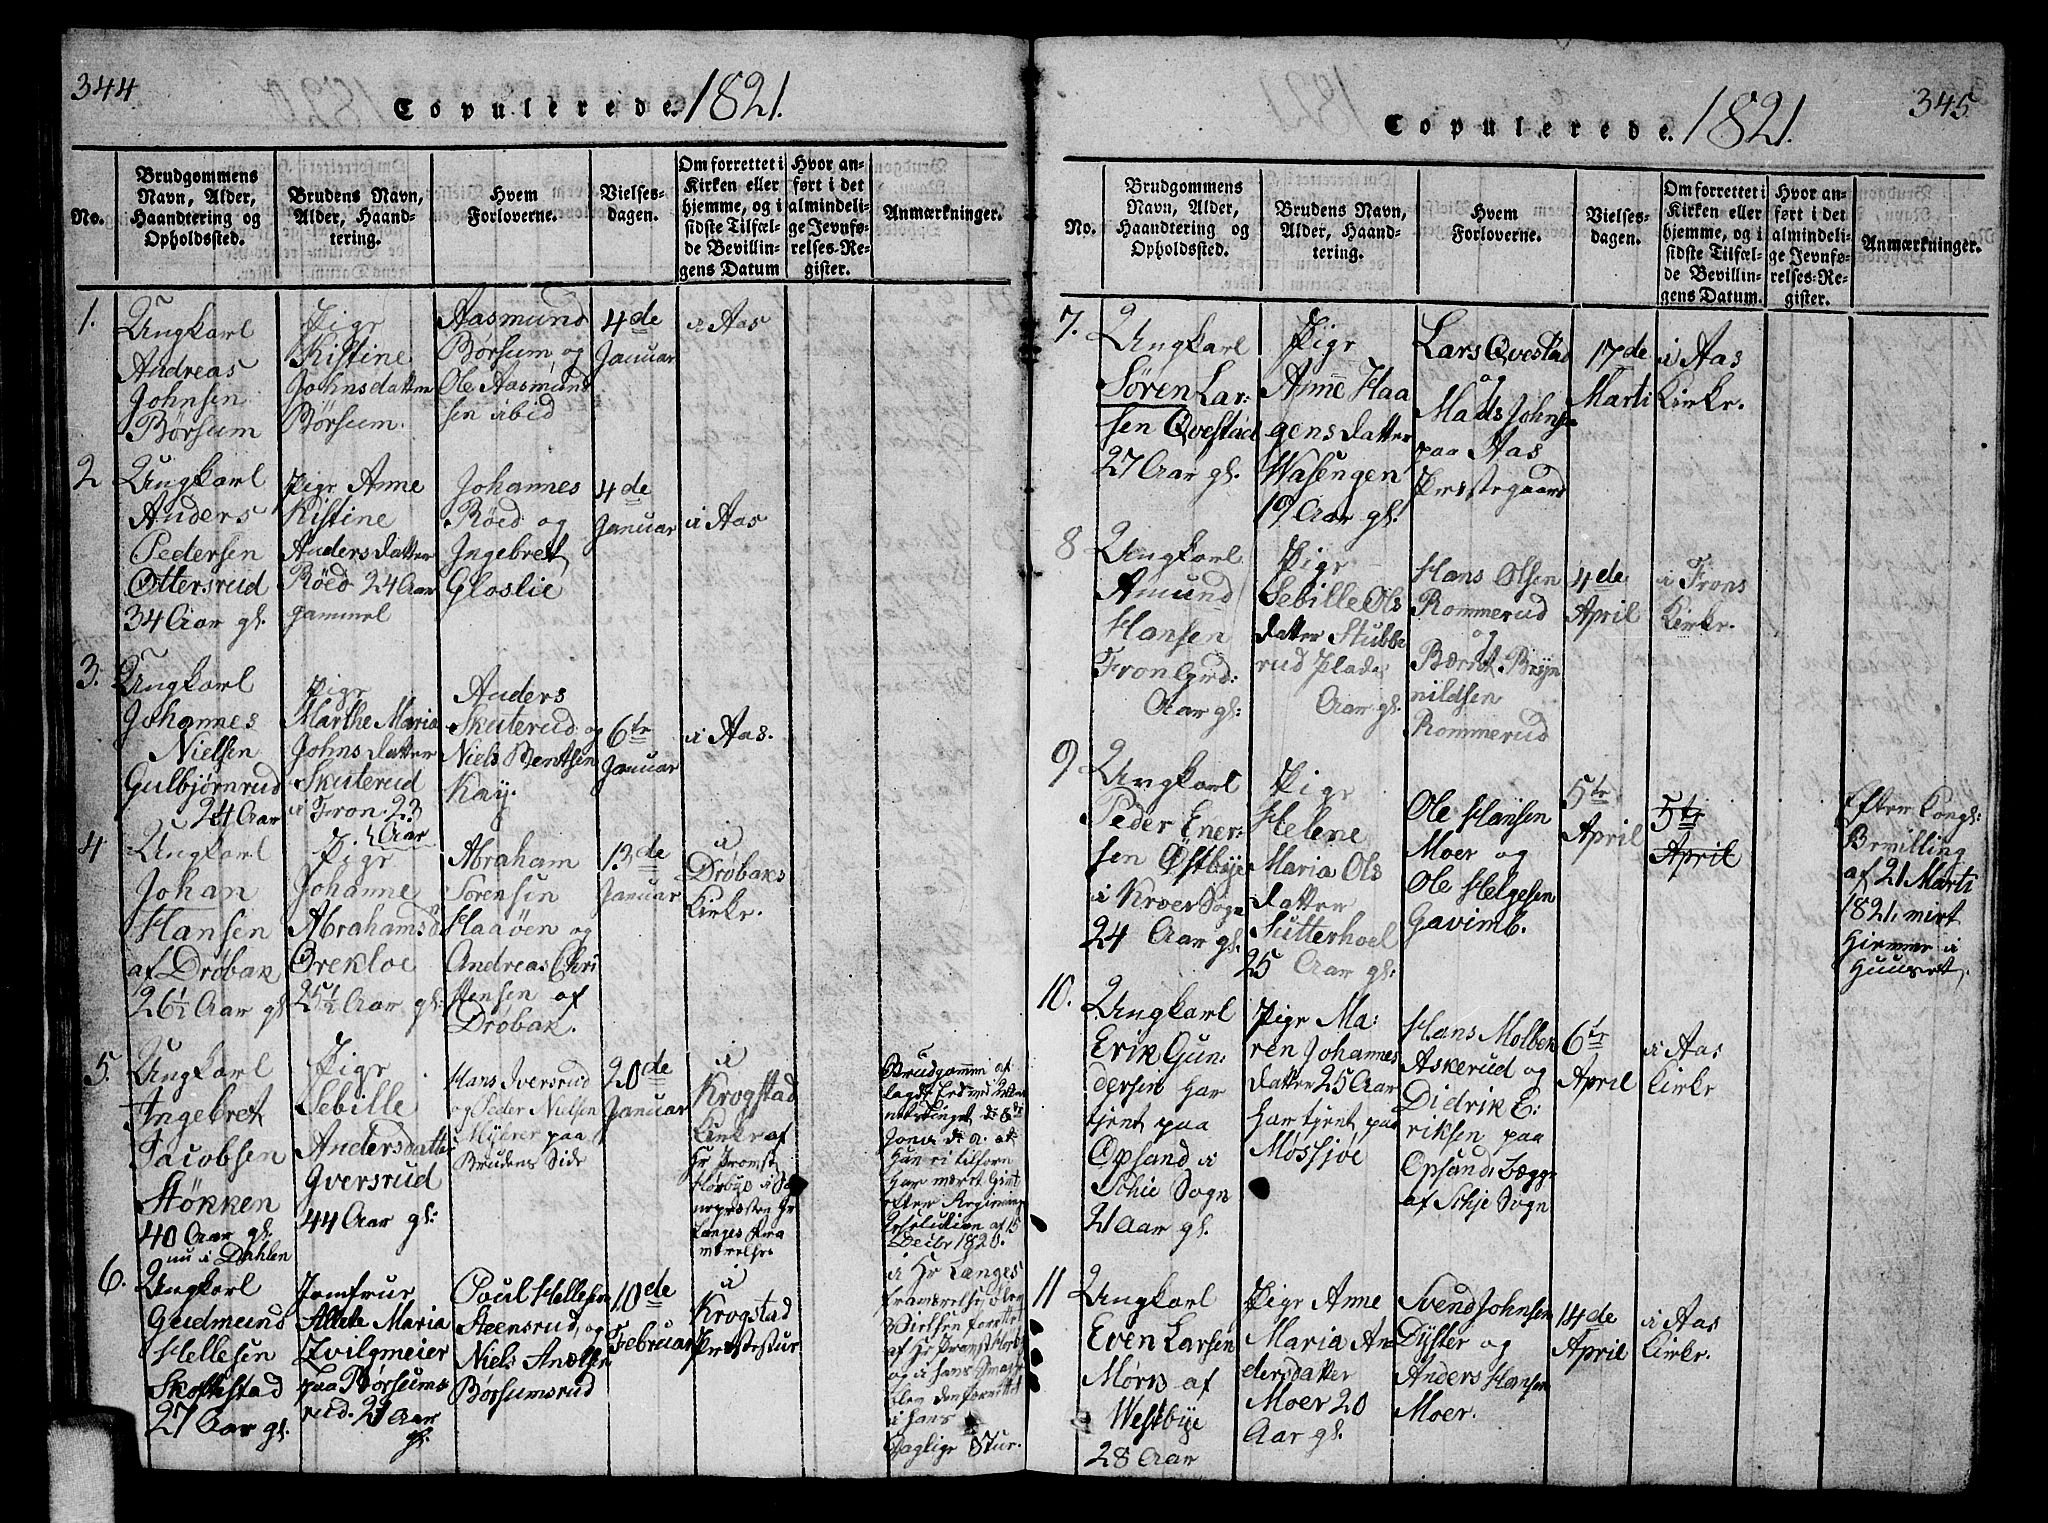 344
Copulerede. 1821.
No.
Brudgommens Navn, Alder, Haandtering og Opholdssted.
Brudens Navn, Alder, Haandtering.
Hvem Forloverne.
Vielsesdagen.
Om forrettet i Kirken eller hjemme, og i sidste Tilfælde Bevillingens Datum
Hvor anført i det almindelige Jevnførelses-Register.
Anmærkninger.
1.
Ungkarl
Andreas
Johnsen
Børsum
Pige
Kistine
Johnsdatter
Børsum.
Aasmund
Børsum og
Ole Aasmund
sen ibid
4de
Januar
i Aas
2
Ungkarl
Anders
Pedersen
Ottersrud
34 Aar gl.
Pige Anne
Kistine
Andersdatter
Røed 24 Aar
gammel
Johannes
Røed og
Ingebret
Gloslie
4de
Januar
i Aas
3.
Ungkarl
Johannes
Nielsen
Gulbjørnrud
24 Aar
Pige
Marthe Maria
Johnsdatter
Skuterud
i Fron. 23
Aar
Anders
Skuterud og
Niels Bentsen
Kay.
6te
Januar
i Aas.
4
Ungkarl
Johan
Hansen
af Drøbak
26½ Aar gl
Pige
Johanne
Abrahamsd
Orekloe
25½ Aar gl:
Abraham
Sørensen
Haaven og
Andreas Chri
stensen af
Drøbak.
13de
Januar
i
Drøbaks
Kirke.
5.
Ungkarl
Ingebret
Jacobsen
Støkken
40 Aar gl.
nu i Dahlen
Pige
Sebille
Andersdatte
Iversrud
44 Aar gl:
Hans Iversrud
og Peder Nielsen
Myhrer paa
Brudens Side
20de
Januar
i
Krogstad
Kirke af
Hr Promst
Hørbye i
Langes
Brudgommen af
lagde Eed ved
af
Han ei tilforn
har været Givt
efter Regjerings
Resolution af 15
Decbr 1820.
i Hr Langes
6.
Ungkarl
Gudmund
Hellesen
Skoftestad
27 Aar gl.
Jomfrue
Allete Maria
Zvilgmeier
paa Børsums
rud. 21 Aar
gl.
Poul Hellesen
Steensrud, og
Niels
Børsumsrud
10de
Februar
i
Krogstad
Præstestue
Vielsen forrettet
af Hr Promst
og i hans
blev den forrettet
i hans
Daglige Stue.
345
Copulerede. 1821.
No.
Brudgommens Navn, Alder, Haandtering og Opholdssted.
Brudens Navn, Alder, Haandtering.
Hvem Forloverne.
Vielsesdagen.
Om forrettet i Kirken eller hjemme, og i sidste Tilfælde Bevillingens Datum.
Hvor anført i det almindelige Jevnførelses-Register.
Anmærkninger.
7.
Ungkarl
Søren Lar:
sen Qvestad
27 Aar gl.
Pige
Anne Haa
gensdatter
Wasengen
19 Aar gl.
Lars Qvestad
og
Mads Johnse
paa Aas
Præstegaard
17de
Marti
i Aas
Kirke.
8
Ungkarl
Amund
Hansen
Fron
Aar gl:
Pige
Sebille Ols
datter Stubbe
rud Plads
Aar gl.
Hans Olsen
Rommerud
og
Berent Bryn
nildsen
Rommerud
4de
April
i Frons
Kirke.
9
Ungkarl
Peder Ener:
sen Østbye
i Kroer Sogn
24 Aar gl.
Pige
Helene
Maria Ols
datter
Sutterhoel
25 Aar gl:
Ole Hansen
Moer og
Ole Helgesen
Gavimb.
5te
April
5te
April
Efter Kongl:
Bevilling
af 21 Marti
1821. viet
hjemme i
Huuset.
10.
Ungkarl
Erik Gun:
dersen har
tjent paa
Opsand i
Schie Sogn
21 Aar gl.
Pige Ma:
ren Johannes
datter 25 Aar
har tjent paa
Mossjøe
Hans Molbek
Askerud og
Didrik E:
riksen paa
Opsand, begge
af Schje Sogn
6te
April
i Aas
Kirke
11
Ungkarl
Even Larsen
Møris af
Westbye
28 Aar
Pige Anne
Maria An
dersdatter
Moer 20
Aar gl.
Svend Johnsen
Dyster og
Anders Hansen
Moer.
14de
April
i Aas
Kirke.